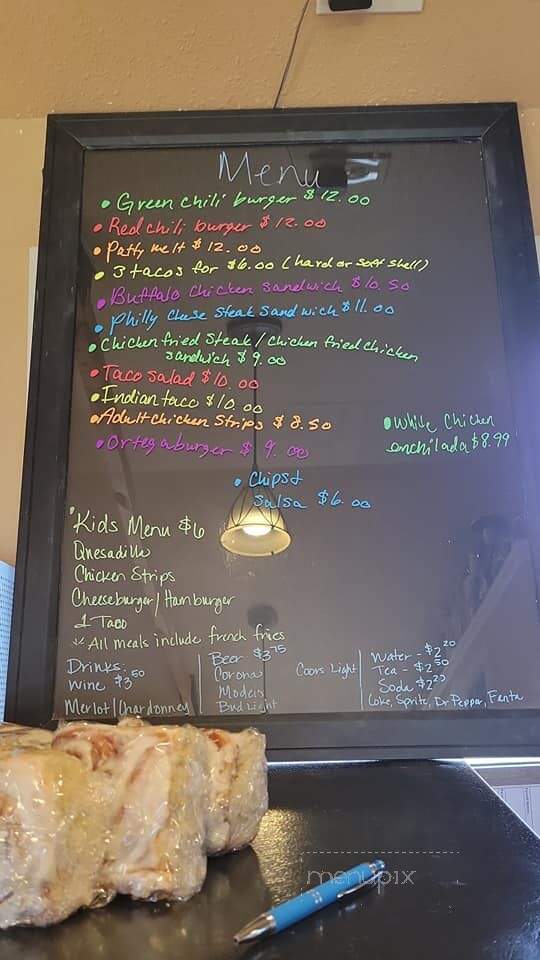 Menu
• Green chili burger $12.00
• Red chili burger $12.00
• Patty melt $12.00
• 3 tacos for $6.00 (hard or soft shell)
• Buffalo Chicken sandwich $10.50
• Philly cheese steak sandwich $11.00
• Chicken fried steak / Chicken fried chicken
sandwich $9.00
• Taco salad $10.00
• Indian taco $10.00
• Adult chicken strips $8.50
• White Chicken
enchilada $8.99
• Ortega burger $9.00
• Chips &
Salsa $6.00
• Kids Menu $6
Quesadilla
Chicken Strips
Cheeseburger / Hamburger
1 Taco
* All meals include french fries
Drinks:
Wine $3.50
Merlot / Chardonney
Beer $3.75
Corona
Modelo
Bud Light
Coors Light
Water - $2.20
Tea - $2.50
Soda $2.25
Coke, Sprite, Dr Pepper, Fanta
menupix